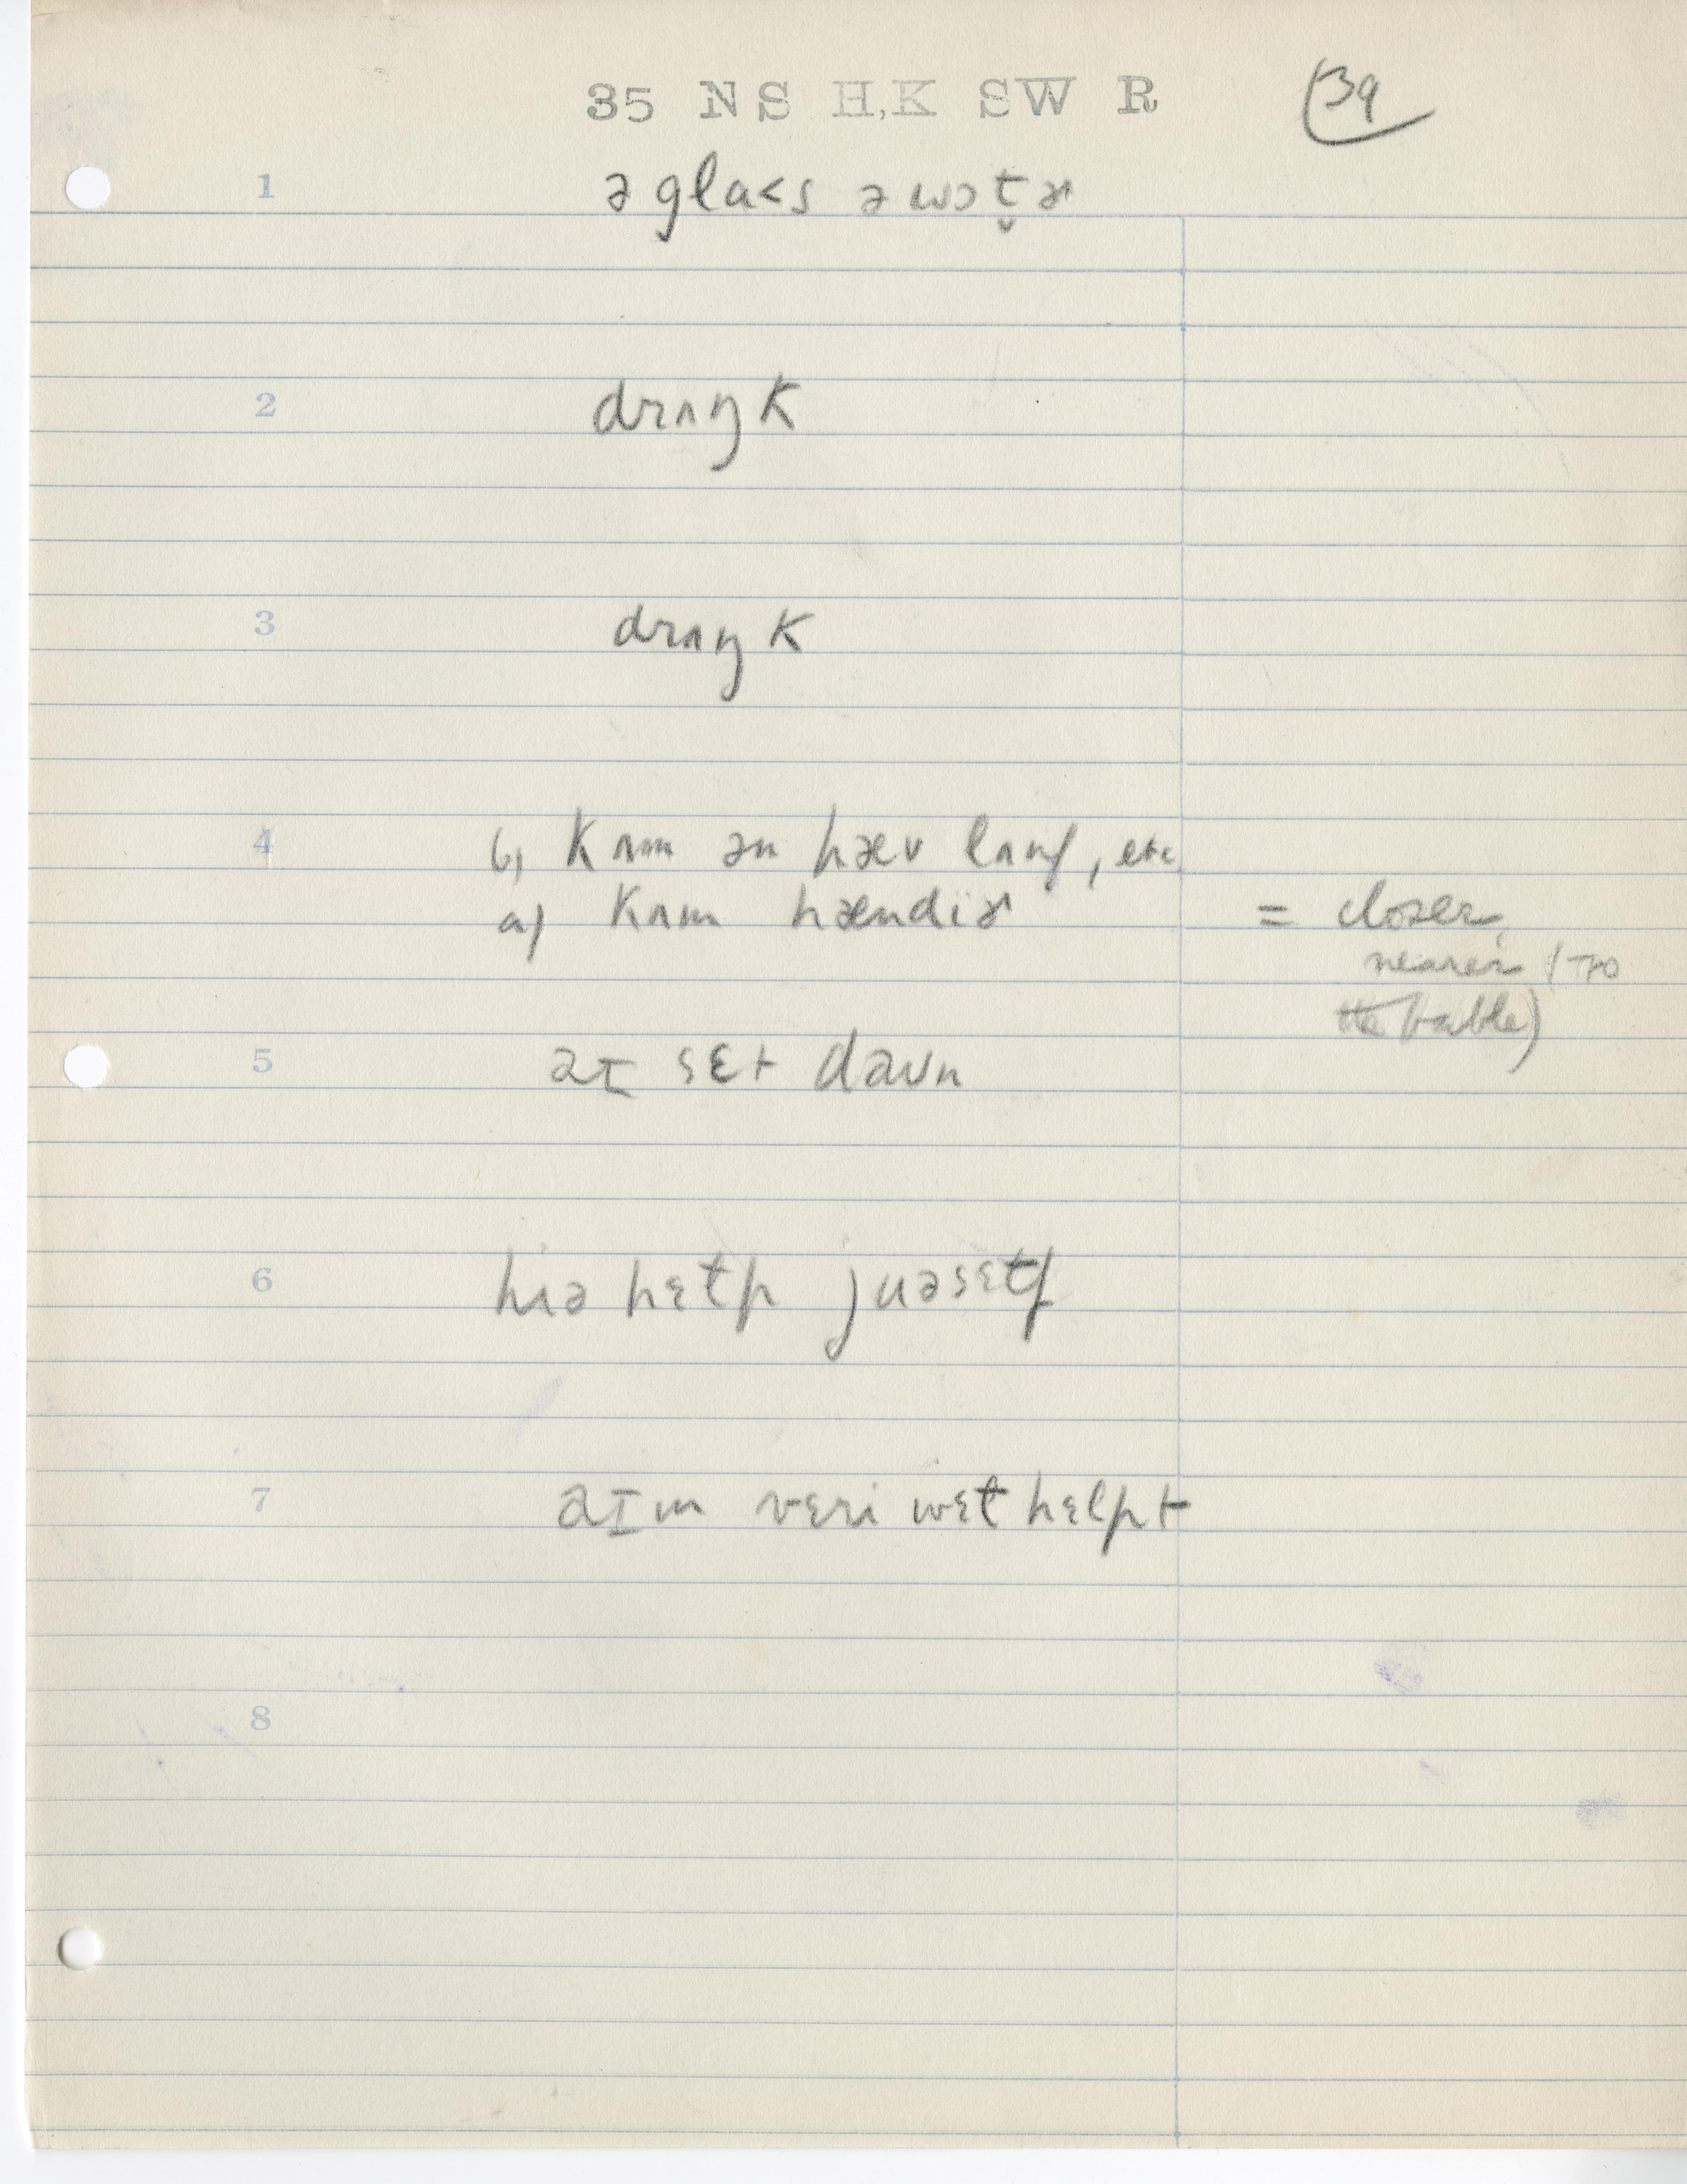 35 NS H,K SW R 39
1 ə gla<s ə wɔt̬ɚ
2 drʌŋk
3 drʌŋk
4 b) kʌm ən hæv lʌnʃ, etc
a) kʌm hændiɚ = closer,
nearer (to
the table)
5 əɪ sɛt daʊn
6 hiə hɛɫp juəsɛɫf
7 əɪm vɛri wɛɫ hɛlpt
8